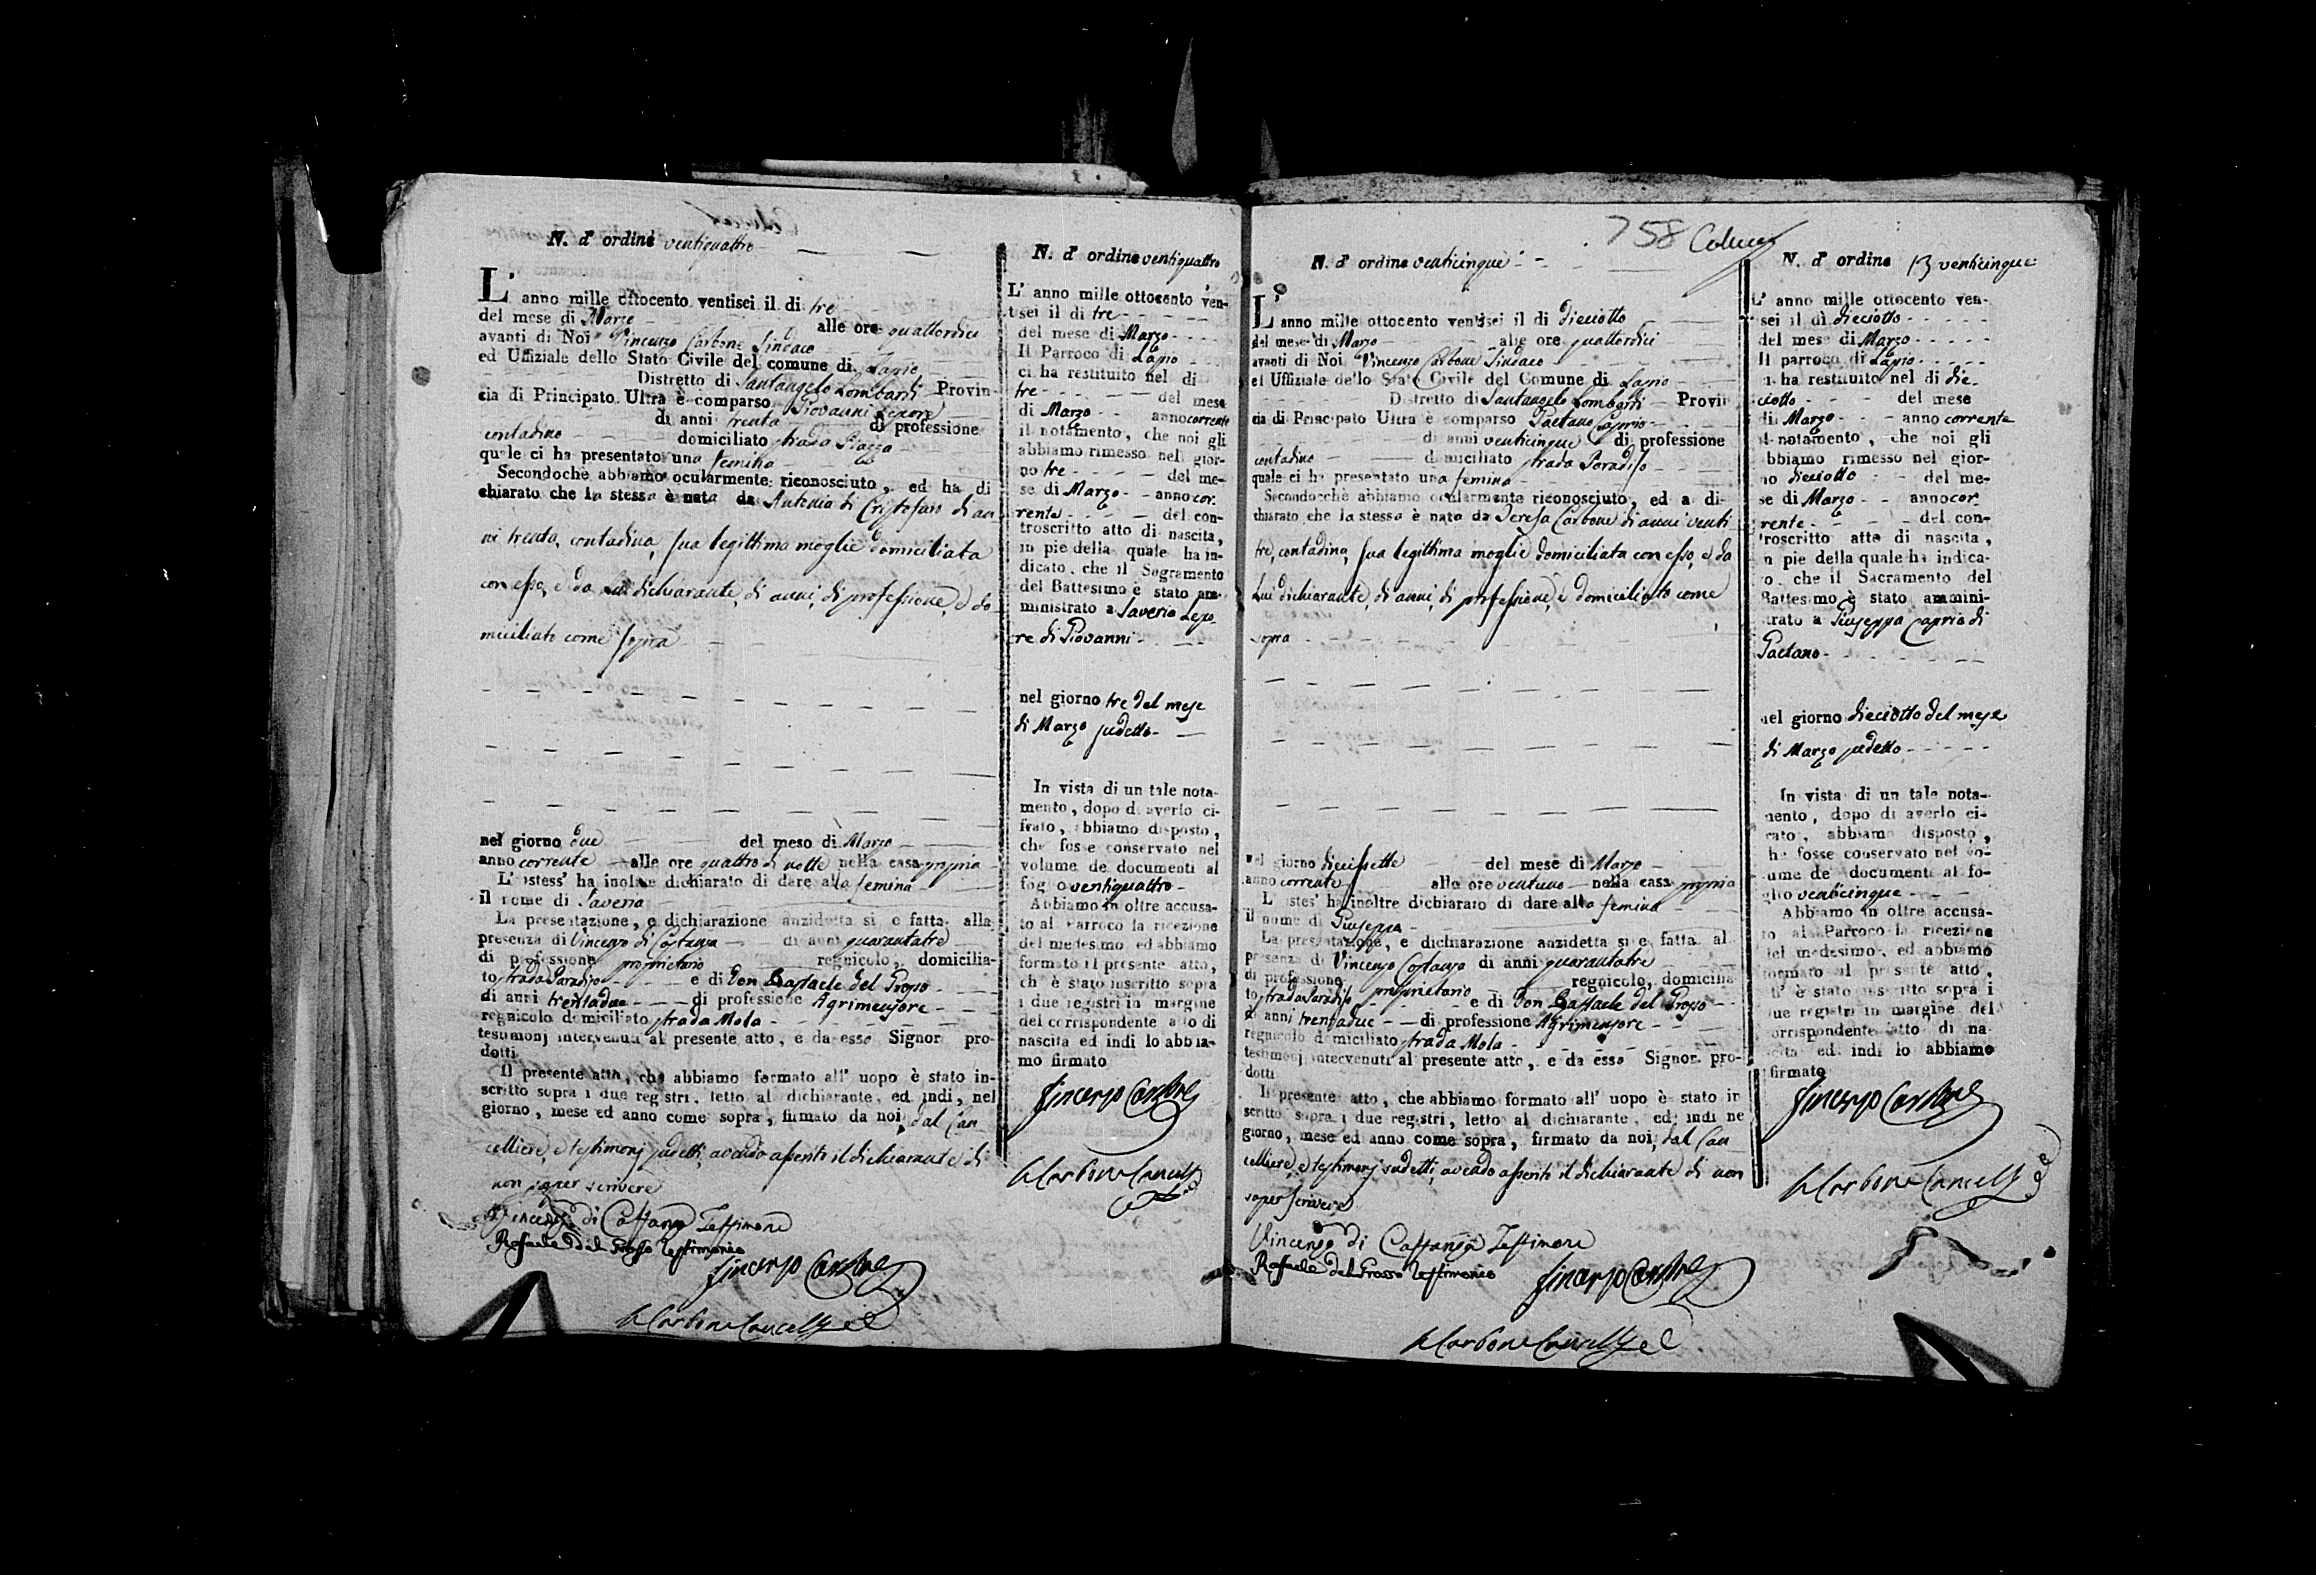 N. d' ordine ventiquattro
L' anno mille ottocento ventisei il di tre
del mese di Marzo alle ore quattordici
avanti di Noi Vincenzo Carbone Sindaco
ed Uffiziale dello Stato Civile del comune di Lapio
Distretto di Santangelo Lombardi Provin
cia di Principato Ultra è comparso Giovanni Lepore
di anni trenta di professione
contadino domiciliato strada Piazza
quale ci ha presentato una femina
Secondochè abbiamo ocularmente riconosciuto, ed ha di
chiarato che la stessa è nata da Antonia di Cristofaro di an
ni trenta, contadina, sua legittima moglie domiciliata
con esso, e da lui dichiarante, di anni, di professione, e do
miciliato come sopra
nel giorno due del mese di Marzo
anno corrente alle ore quattro di notte nella casa propria
L' istess' ha inoltre dichiarato di dare alla femina
il nome di Saveria
La presentazione, e dichiarazione anzidetta si è fatta alla
presenza di Vincenzo di Costanza di anni quarantatre
di professione proprietario regnicolo, domicilia-
to strada Paradiso e di Don Raffaele del Grosso
di anni trentadue di professione Agrimensore
regnicolo domiciliato strada Mola
testimonj intervenuti al presente atto, e da esso Signor pro-
dotti
Il presente atto, che abbiamo formato all' uopo è stato in-
scritto sopra i due registri, letto al dichiarante, ed indi, nel
giorno, mese ed anno come sopra, firmato da noi, dal Can
celliere, e testimonj sudetti, avendo asserito il dichiarante di
non saper scrivere
Vincenzo di Costanzo Testimone
Rafaele del Grosso testimonio
Vincenzo Carbone
Carbone Canc
N. d' ordine ventiquattro
L' anno mille ottocento ven-
tisei il di tre
del mese di Marzo
Il Parroco di Lapio
ci ha restituito nel di
tre del mese
di Marzo anno corrente
il notamento, che noi gli
abbiamo rimesso nel gior-
no tre del me-
se di Marzo anno cor
rente del con-
troscritto atto di nascita,
in pie della quale ha in-
dicato, che il Sagramento
del Battesimo è stato am-
ministrato a Saveria Lepo
re di Giovanni
nel giorno tre del mese
di Marzo sudetto
In vista di un tale nota-
mento, dopo d averlo ci-
frato, abbiamo disposto,
che fosse conservato nel
volume de documenti al
foglio ventiquattro
Abbiamo in oltre accusa-
to al Parroco la ricezione
del medesimo ed abbiamo
formato il presente atto,
ch' è stato inscritto sopra
i due registri in margine
del corrispondente atto di
nascita ed indi lo abbia-
mo firmato
Vincenzo Carbone
Carbone Canc
758 Coluccj
N. d' ordine venticinque
L' anno mille ottocento ventisei il di Dieciotto
del mese di Marzo alle ore quattordici
avanti di Noi Vincenzo Carbone Sindaco
el Uffiziale dello Stato Civile del Comune di Lapio
Distretto di Santangelo Lombardi Provin
cia di Principato Ultra è comparso Gaetano Caprio
di anni venticinque di professione
contadino domiciliato strada Paradiso
quale ci ha presentato una femina
Secondocchè abbiamo ocularmente riconosciuto, ed a di-
chiarato che la stessa è nata da Teresa Carbone di anni venti
tre, contadina, sua legittima moglie domiciliata con esso, e da
lui dichiarante, di anni, di professione, e domiciliato come
sopra
nel giorno diecisette del mese di Marzo
anno corrente alle ore ventuno nella casa propria
L' istes' ha inoltre dichiarato di dare alla femina
il nome di Giuseppa
La presentazione, e dichiarazione anzidetta si e fatta al
presenza di Vincenzo Costanzo di anni quarantatre
di professione proprietario regnicolo, domicilia
to strada Paradiso e di Don Raffaele del Grosso
di anni trentadue di professione Agrimensore
regnicolo domiciliato strada Mola
testimonj intervenuti al presente atto, e da esso Signor pro-
dotti
Il presente atto, che abbiamo formato all' uopo è stato in
scritto sopra i due registri, letto al dichiarante, ed indi ne
giorno, mese ed anno come sopra, firmato da noi, dal Can
celliere, e testimonj sudetti, avendo asserito il dichiarante di non
saper scrivere
Vincenzo di Costanzo Testimone
Rafaele del Grosso testimonio
Vincenzo Carbone
Carbone Canc
N. d' ordine 13 venticinque
L' anno mille ottocento ven-
sei il dì dieciotto
del mese di Marzo
Il parroco di Lapio
ci ha restituito nel di die-
ciotto del mese
di Marzo anno corrente
il notamento, che noi gli
abbiamo rimesso nel gior-
no dieciotto del me-
se di Marzo anno cor
rente del con-
troscritto atto di nascita,
in pie della quale ha indica-
to, che il Sacramento del
Battesimo è stato ammini-
strato a Giuseppa Caprio di
Gaetano
nel giorno dieciotto del mese
di Marzo sudetto
In vista di un tale nota-
mento, dopo di averlo ci-
frato, abbiamo disposto,
che fosse conservato nel vo-
lume de' documenti al fo-
glio venticinque
Abbiamo in oltre accusa-
to al Parroco la ricezione
del medesimo, ed abbiamo
formato il presente atto,
ch' è stato inscritto sopra i
due registri in margine del
corrispondente atto di na-
scita ed indi lo abbiamo
firmato
Vincenzo Carbone
Carbone Canc